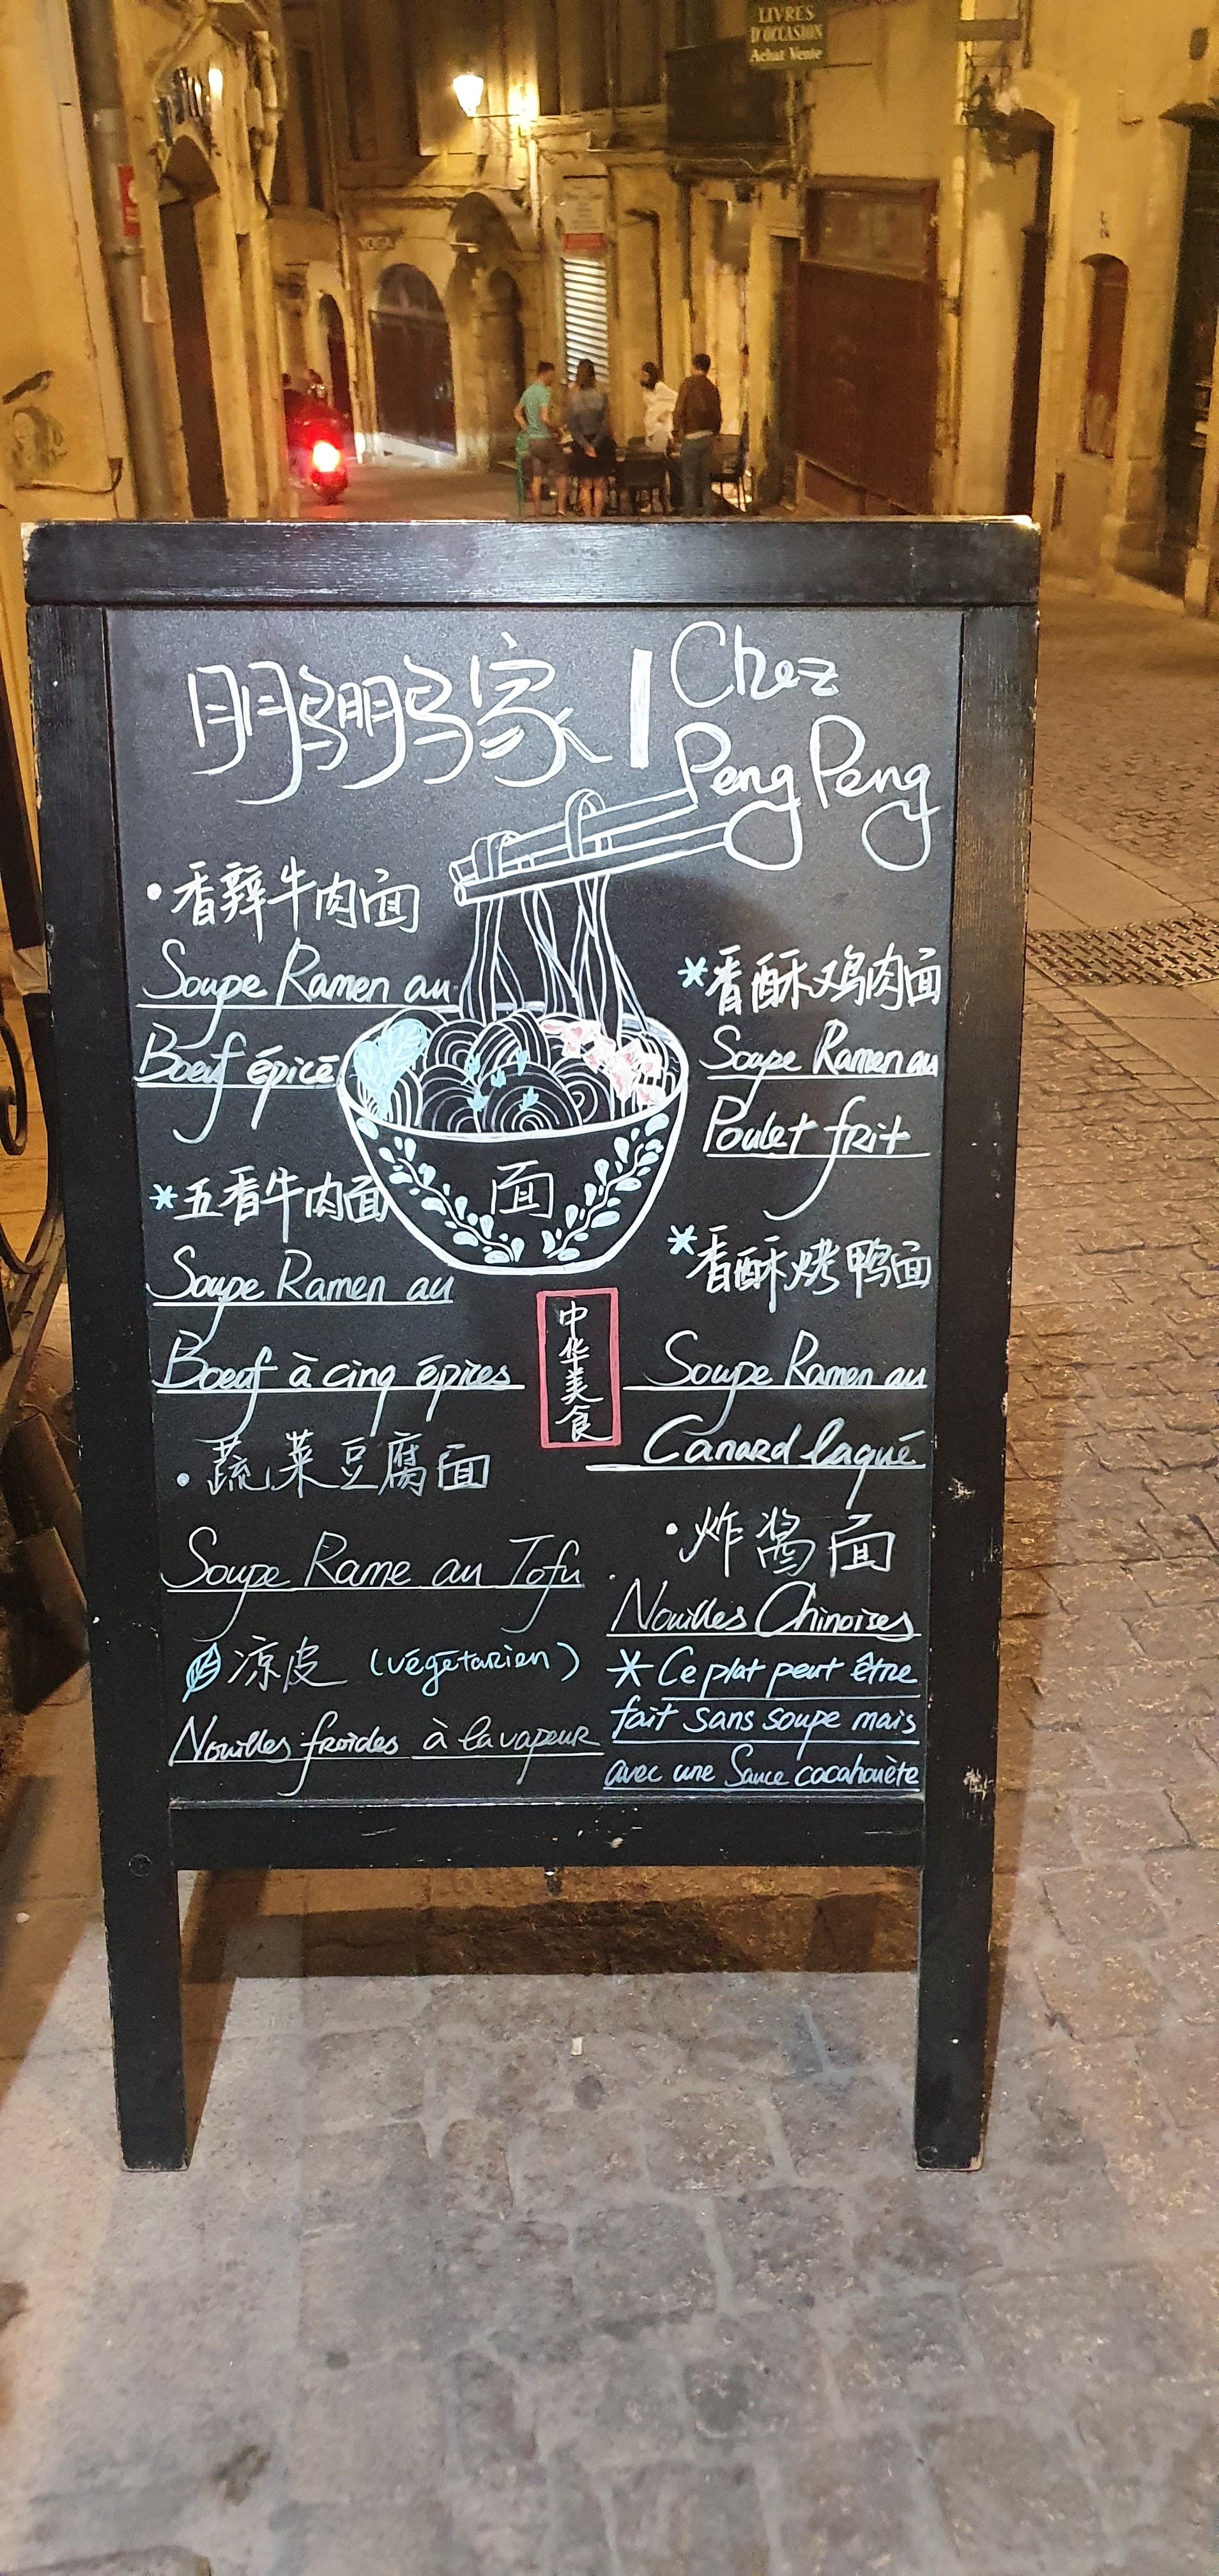 LIVRES
D'OCCASION
Achat Vente
YOGA
鹏鹏家 | Chez
Peng Peng
•香辣牛肉面
Soupe Ramen au
Boeuf épicé
*五香牛肉面
Soupe Ramen au
Boeuf à cinq épices
•蔬菜豆腐面
Soupe Rame au Tofu.
凉皮 (végétarien)
Nouilles froides à la vapeur
面
中华美食
*香酥鸡肉面
Soupe Ramen au
Poulet frit
*香酥烤鸭面
Soupe Ramen au
Canard laqué
•炸酱面
Nouilles Chinoises
*Ce plat peut être
fait sans soupe mais
avec une Sauce cacahouète